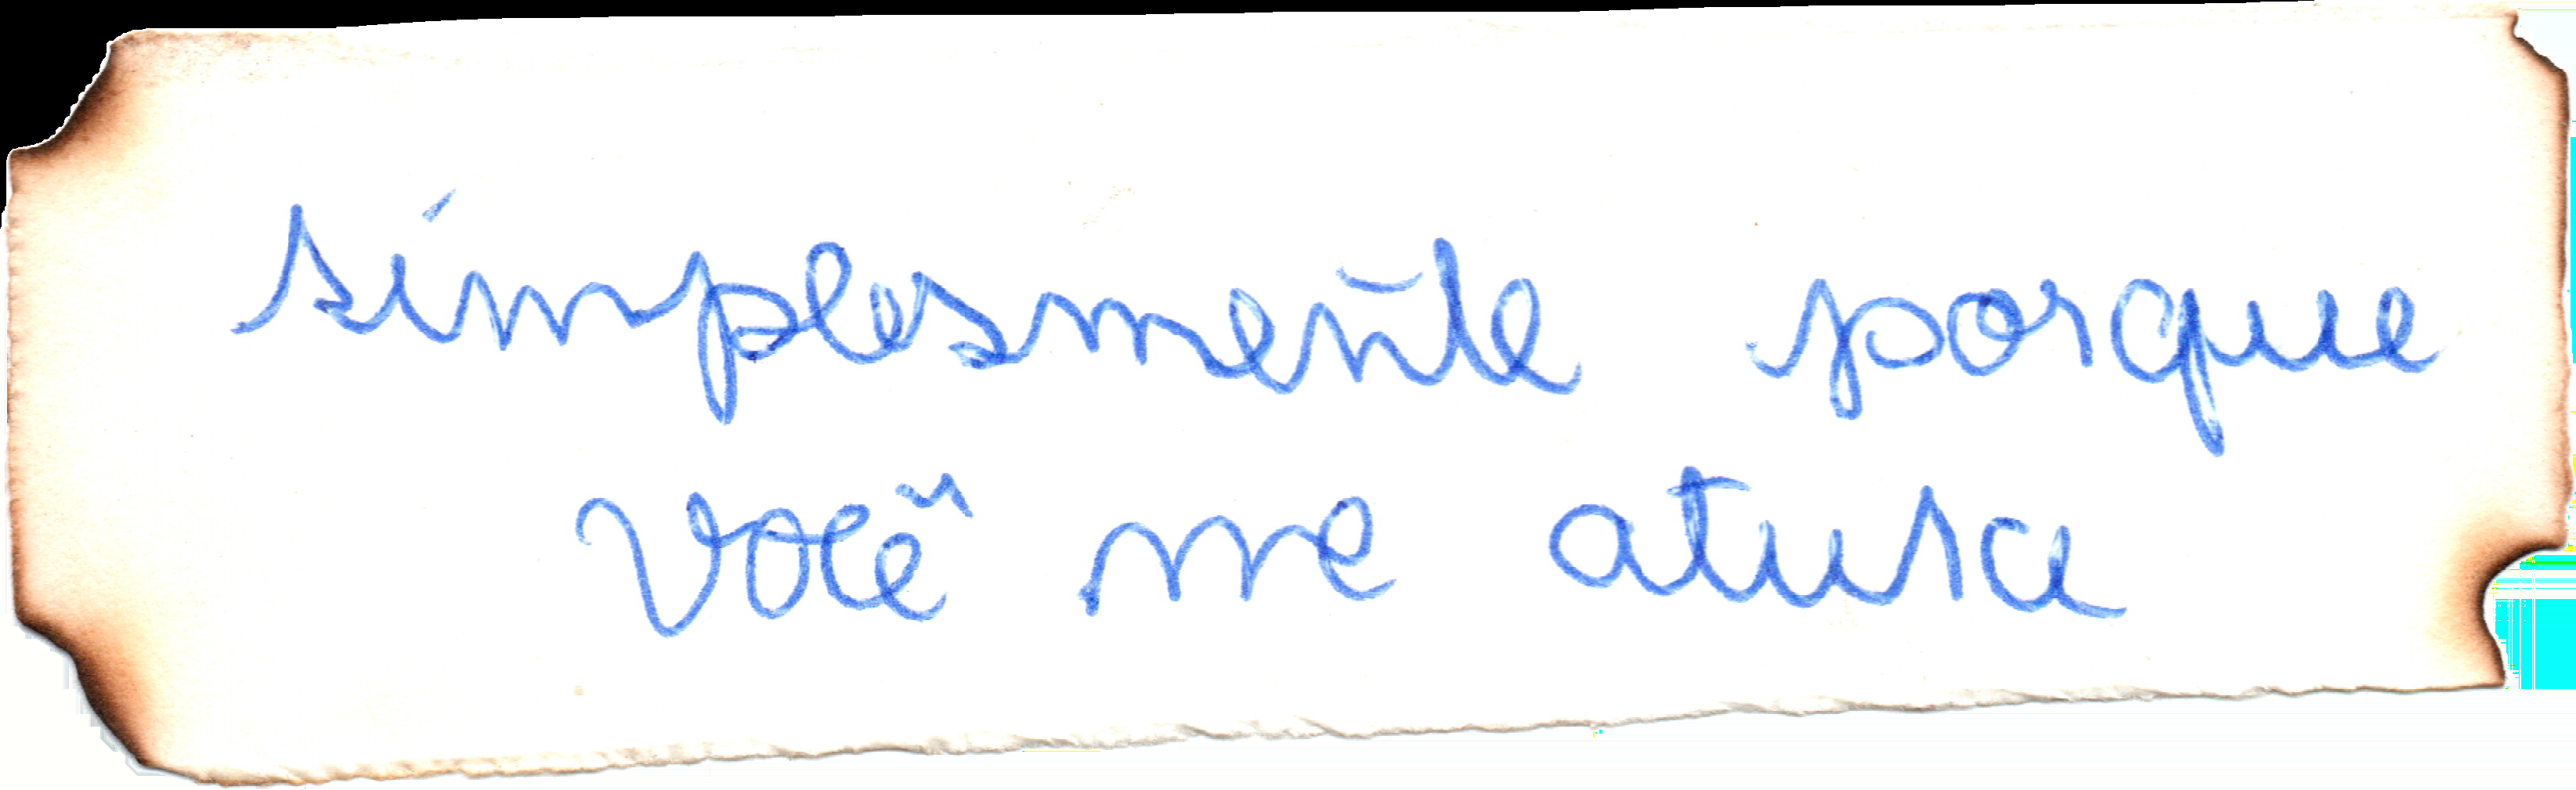 simplesmente porque
você me atura